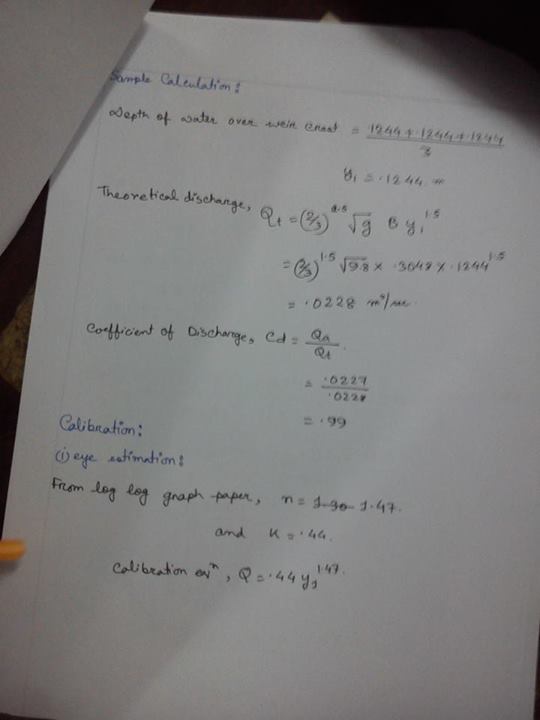 Sample Calculation:
Depth of water over weir crest = (.1244 + .1244 + .1244)/3
y₁ = .1244 m
Theoretical discharge, Qt = (2/3)^1.5 √g B y₁^1.5
= (2/3)^1.5 √9.8 × .3048 × .1244^1.5
= .0228 m³/sec.
Coefficient of Discharge, Cd = Qa/Qt.
= .0227/.0228
= .99
Calibration:
(i) eye estimation:
From log log graph paper, n = 1.47.
and K = .44.
Calibration eqⁿ, Q = .44 y₁^1.47.